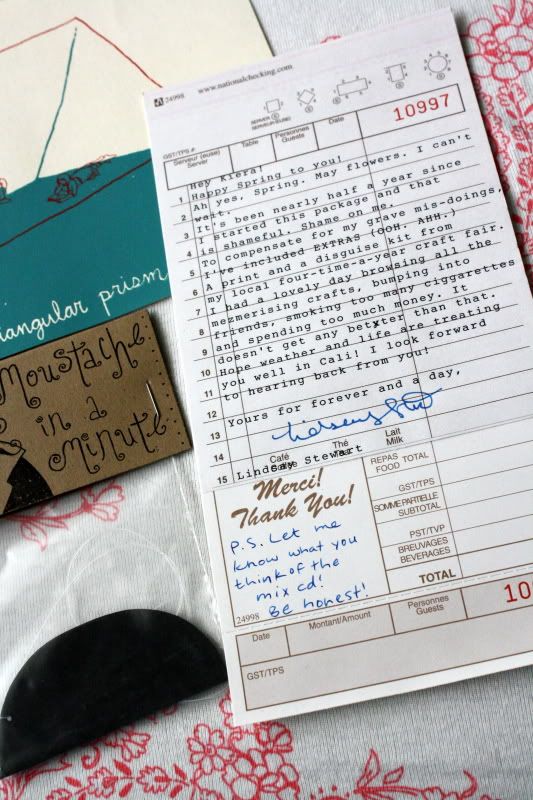 iangular prism
Moustache
in a
Minute
24998
www.nationalchecking.com
10997
GST/TPS #
Serveur (euse)
Server
Table
Personnes
Guests
Date
Hey Kiera!
1 Happy Spring to you!
Ah yes, Spring. May flowers. I can't
2 wait.
3 It's been nearly half a year since
I started this package and that
4 is shameful. Shame on me.
5 To compensate for my grave mis-doings,
I've included EXTRAS (OOH. AHH.)
6 A print and a disguise kit from
7 my local four-time-a-year craft fair.
I had a lovely day browsing all the
8 mezmerising crafts, bumping into
9 friends, smoking too many ciggarettes
and spending too much money. It
10 doesn't get any better than that.
Hope weather and life are treating
11 you well in Cali! I look forward
12 to hearing back from you!
13 Yours for forever and a day,
14
Café
Thé
Lait
Milk
15 Lindsay Stewart
Merci!
Thank You!
P.S. Let me
know what you
think of the
mix cd!
Be honest!
24998
REPAS
FOOD TOTAL
GST/TPS
SOMME PARTIELLE
SUBTOTAL
PST/TVP
BREUVAGES
BEVERAGES
TOTAL
Date
Montant/Amount
Personnes
Guests
10
GST/TPS